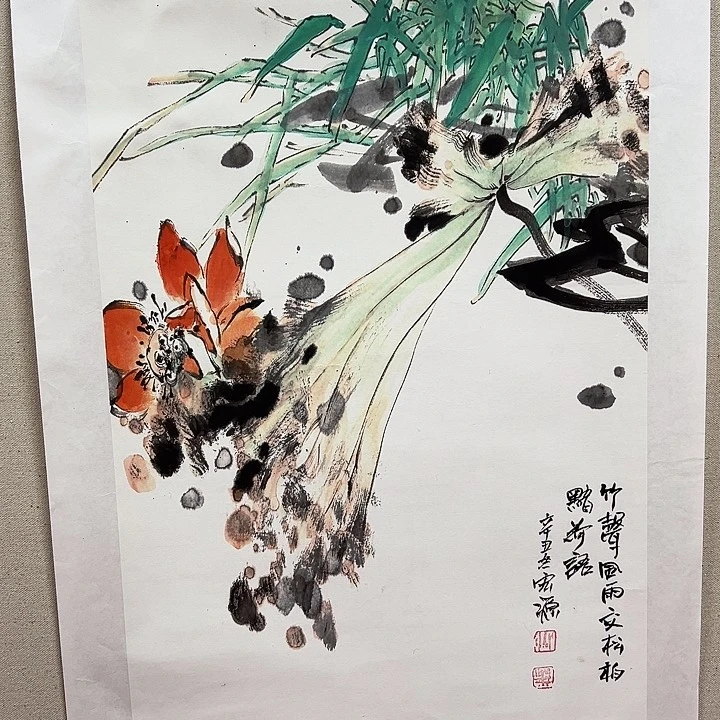 竹聲風雨交松柏
黯荷語
辛丑冬宏源